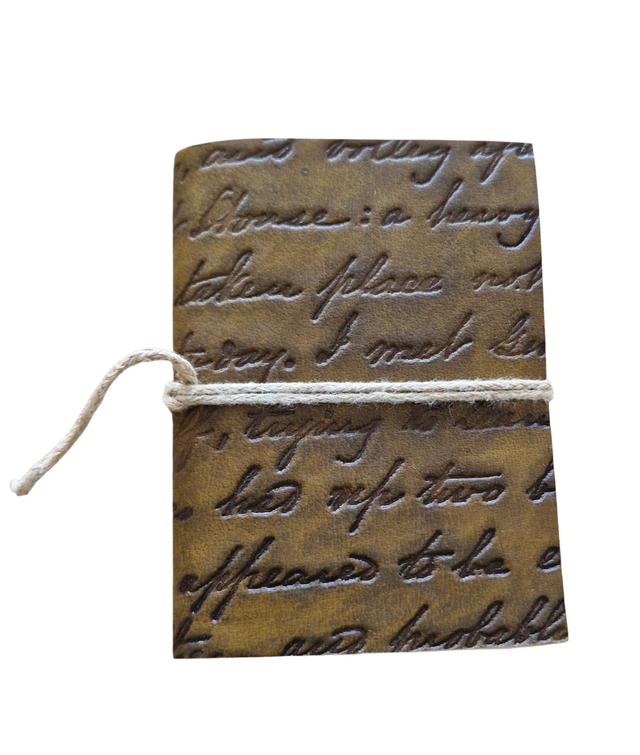 and volley
House : a heavy
taken place
today. I met
, trying to
. had up two
appeared to be
and probabl